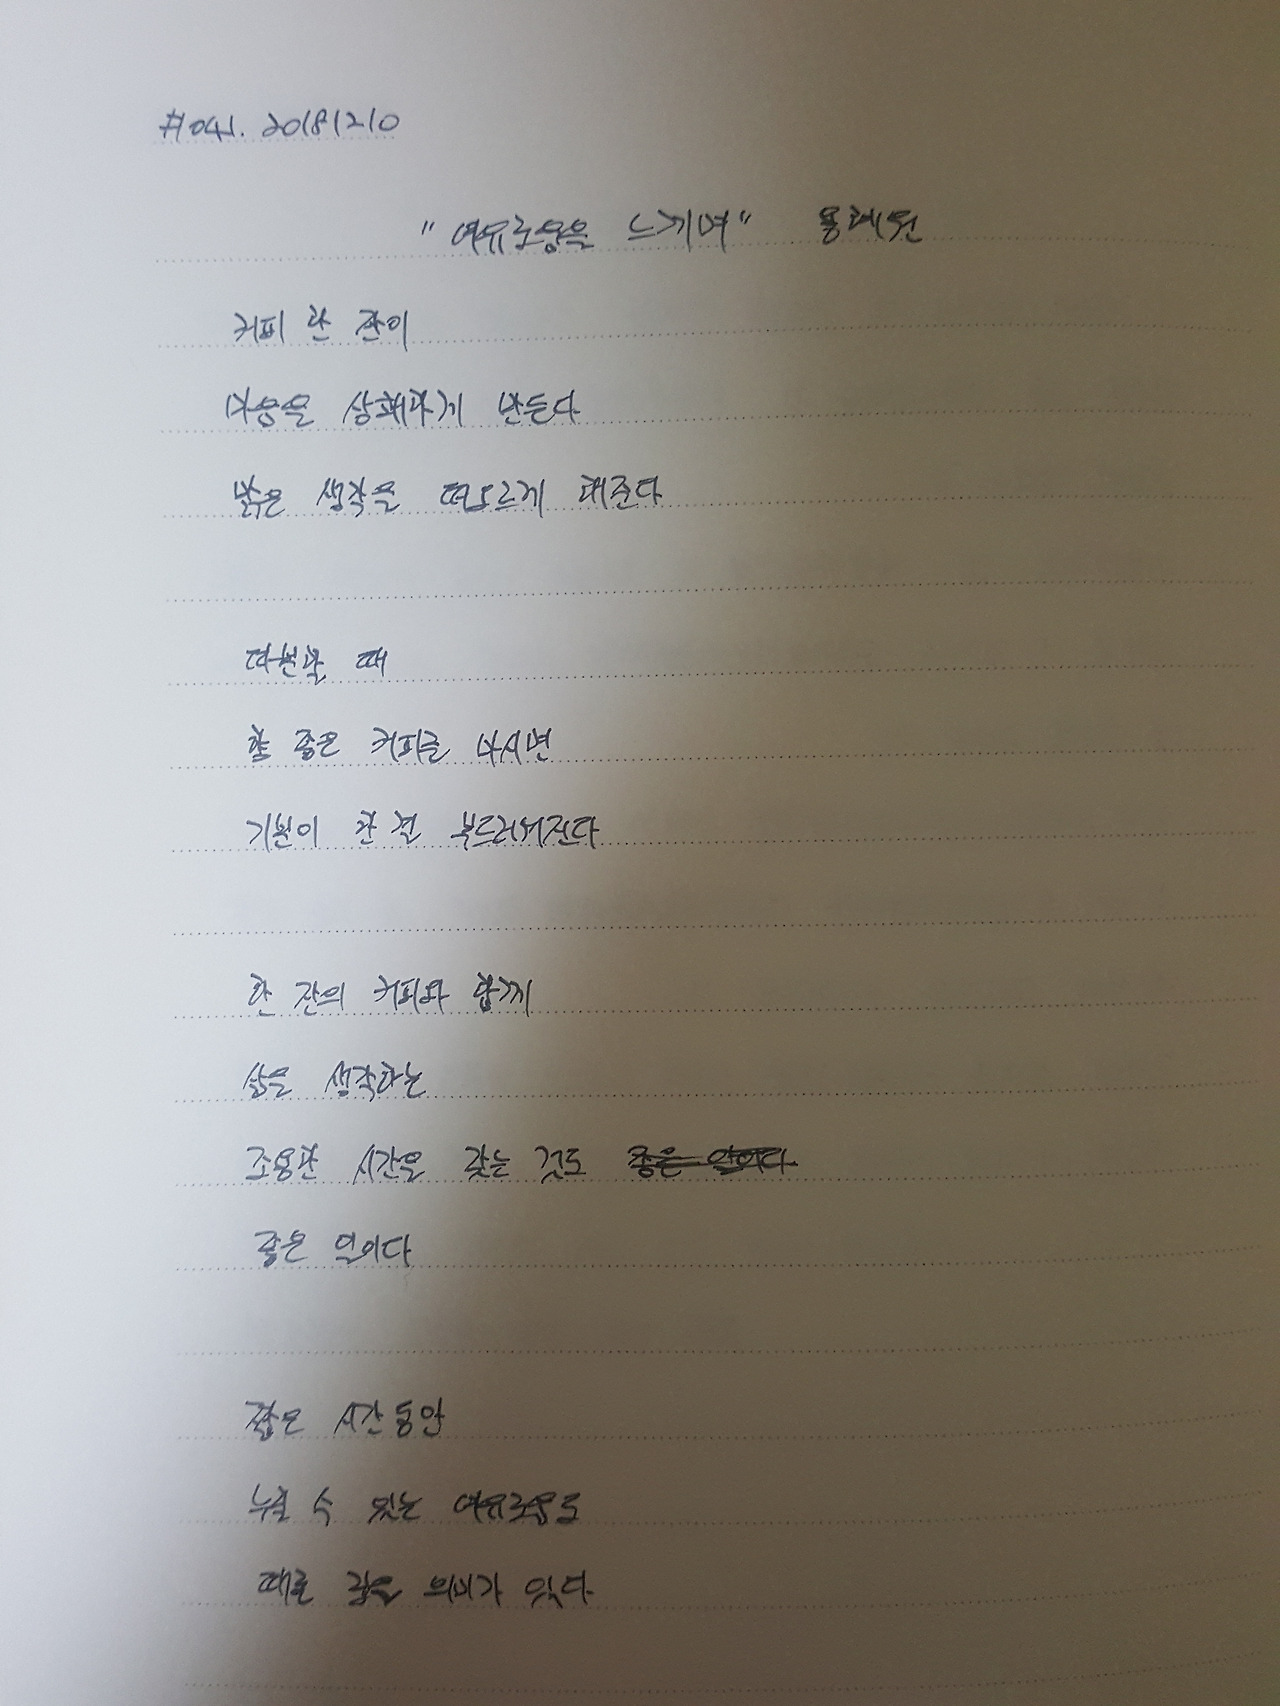 #041. 20181210
"여유로움을 느끼며" 용혜원
커피 한 잔이
마음을 상쾌하게 만든다
밝은 생각을 떠오르게 해준다
따분할 때
향 좋은 커피를 마시면
기분이 한결 부드러워진다
한 잔의 커피와 함께
삶을 생각하는
조용한 시간을 갖는 것도 좋은 일이다
좋은 일이다
짧은 시간동안
누릴 수 있는 여유로움도
때론 깊은 의미가 있다